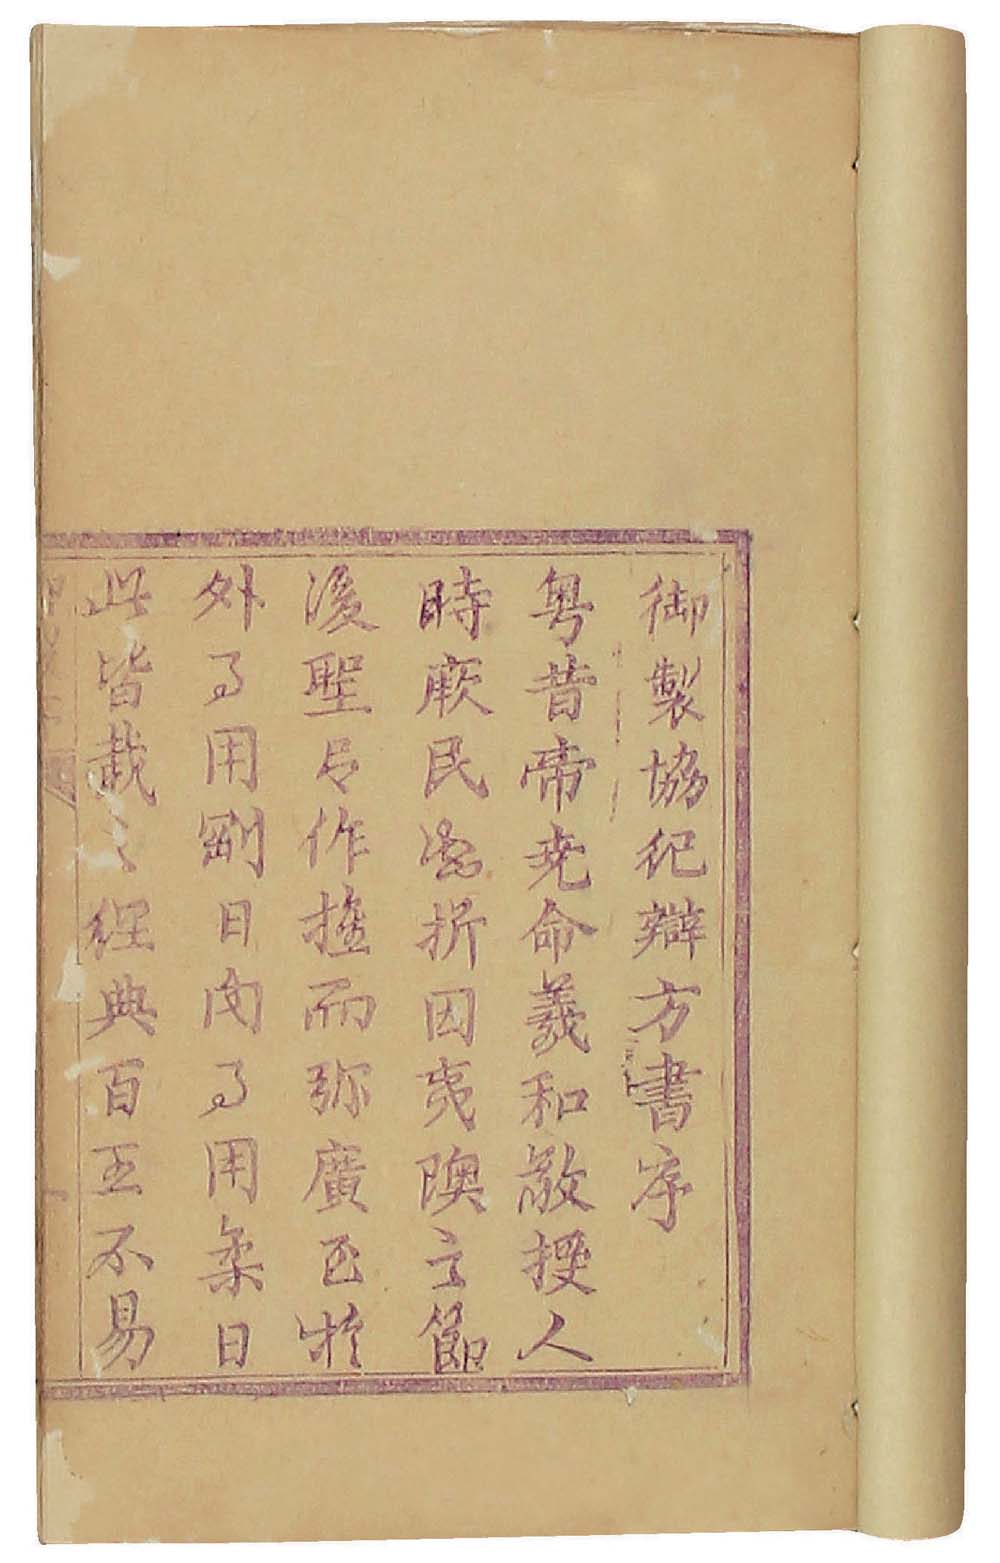 御製協纪辯方書序
粤昔帝尭命羲和敬授人
時厥民忩折因夷隩之節
後聖㠯作推而弥廣至於
外事用剛日内事用柔日
此皆載之經典百王不易